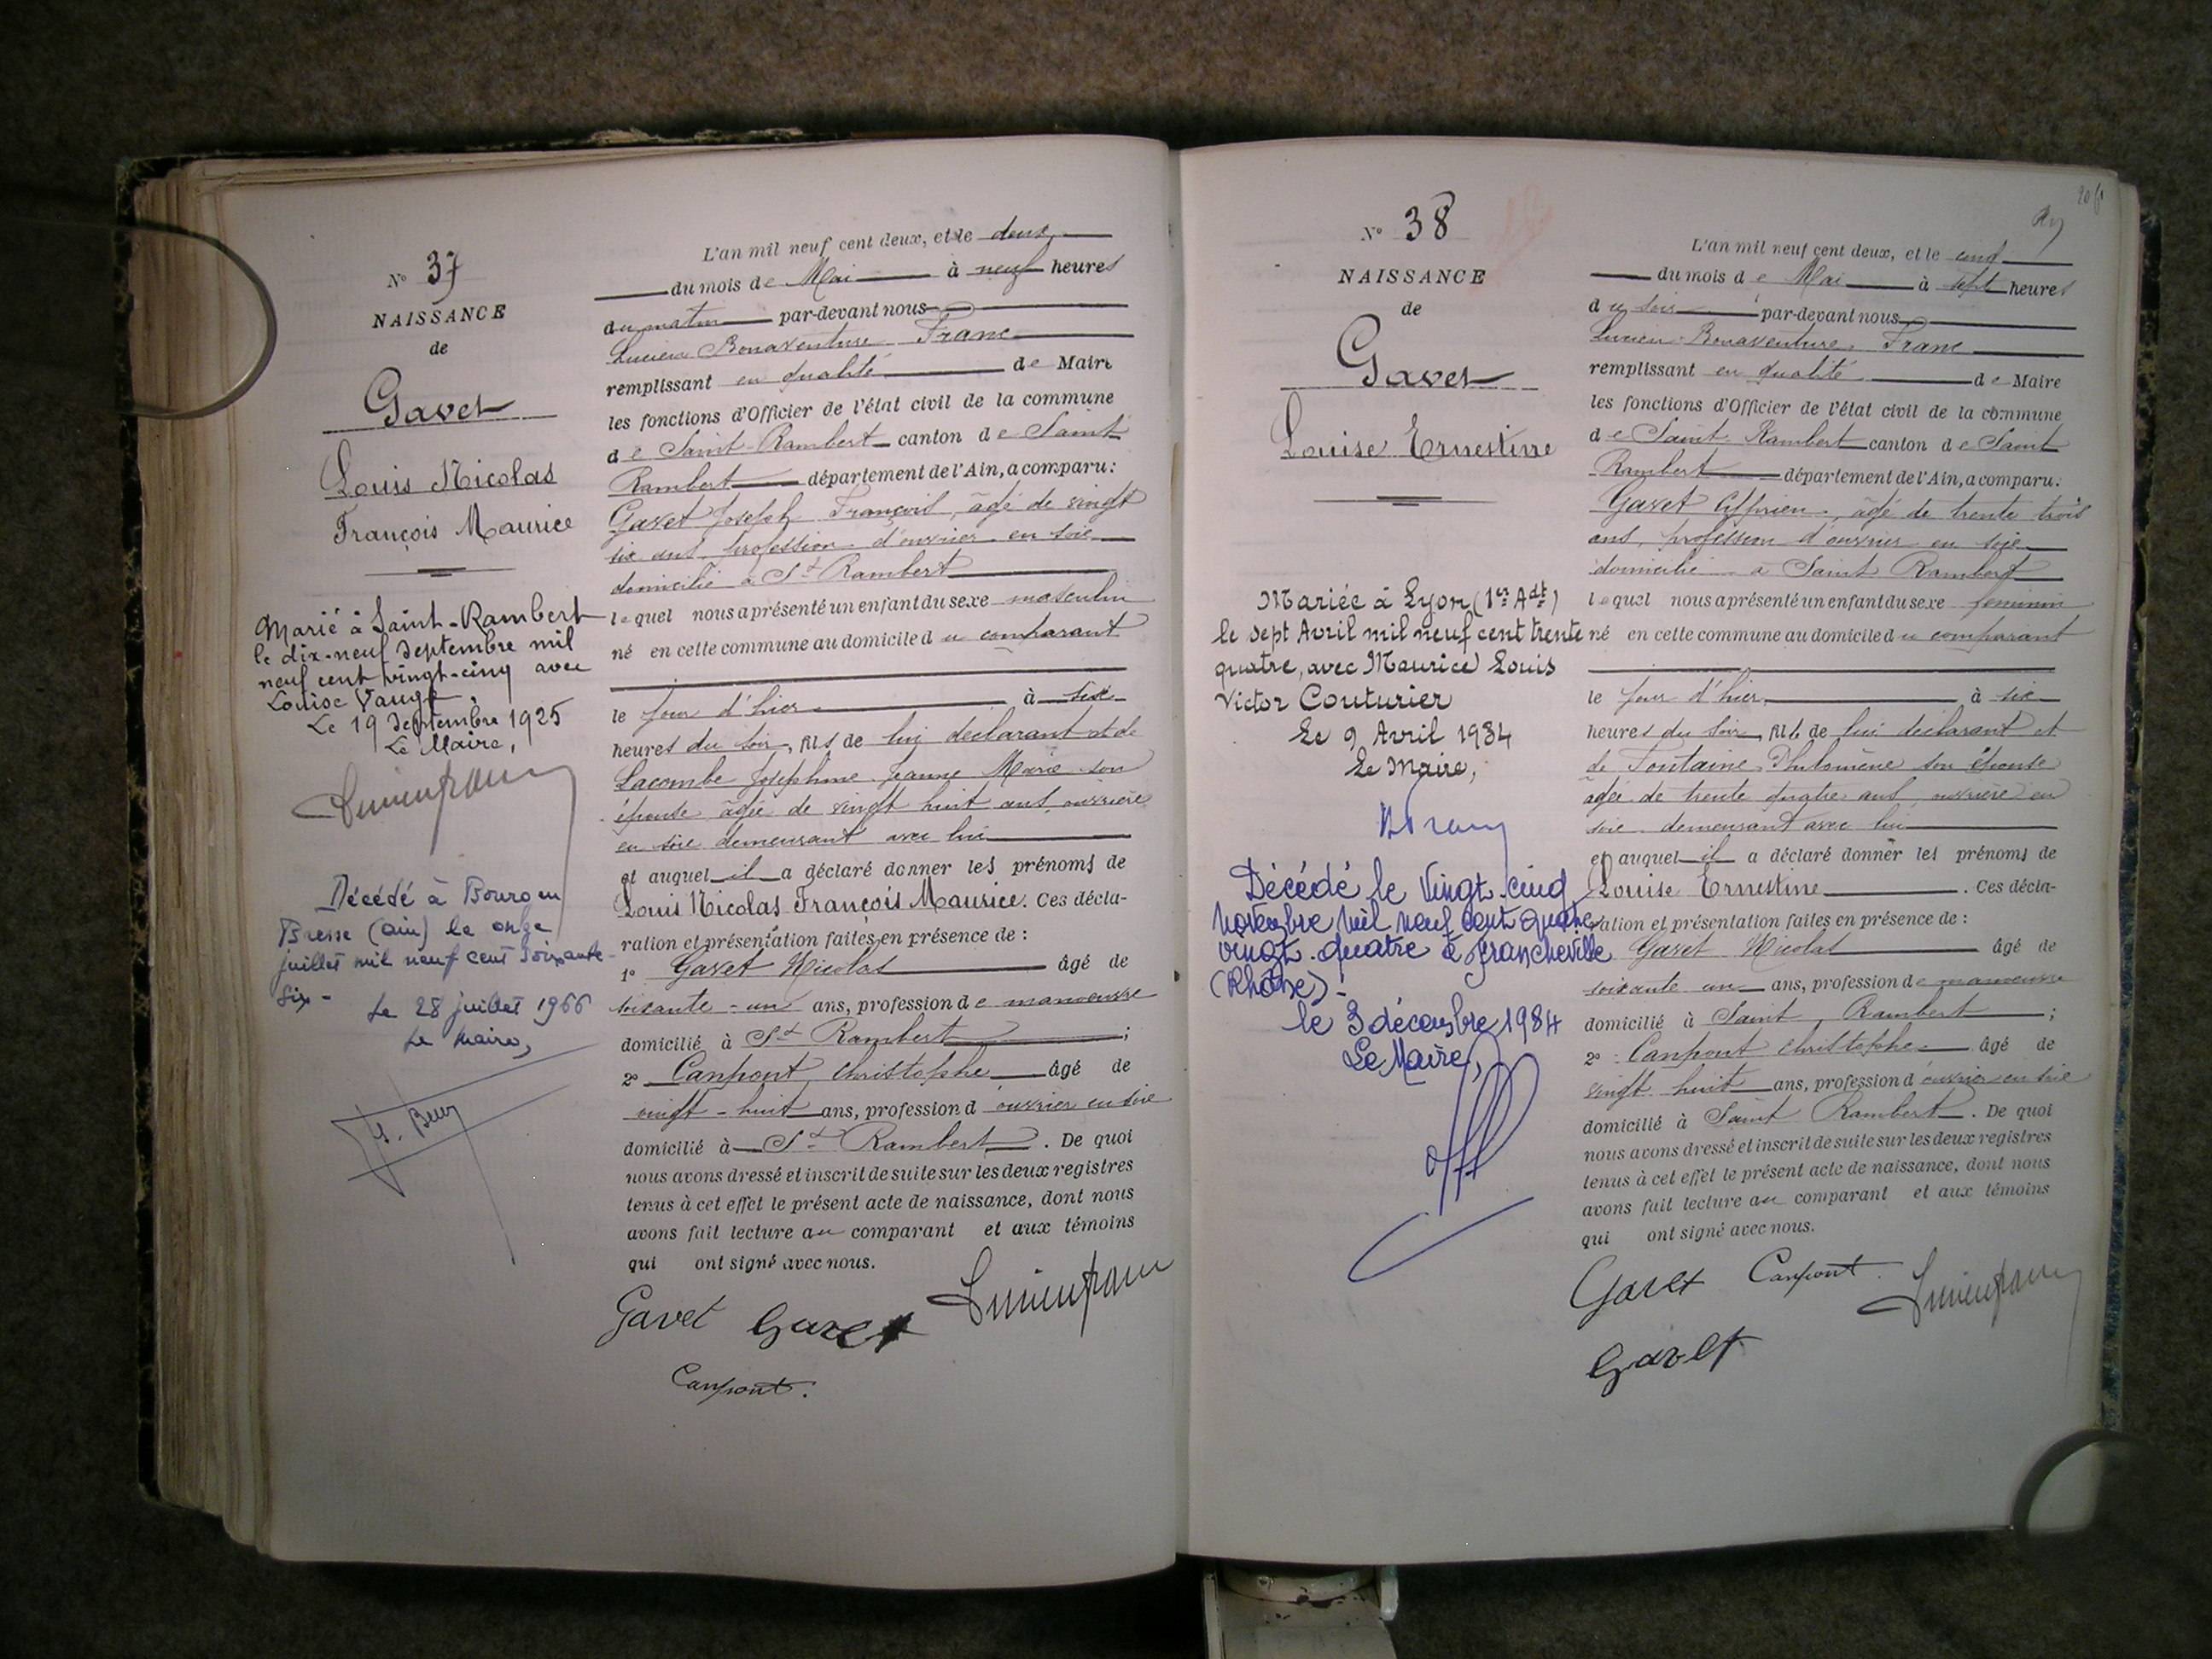 N° 37
NAISSANCE
de
Gavet
Louis Nicolas
François Maurice
Marié à Saint-Rambert
le dix-neuf Septembre mil
neuf cent vingt-cinq avec
Louise
Le 19 Septembre 1925
Le Maire,
Décédé à Bourg en
Bresse (Ain) le onze
juillet mil neuf cent soixante
six -
Le 28 juillet 1966
Le Maire,
L'an mil neuf cent deux, et le deux
du mois de Mai à neuf heures
du matin par-devant nous
Lucien Bonaventure Franc
remplissant en qualité de Maire
les fonctions d'Officier de l'état civil de la commune
de Saint-Rambert canton de Saint
Rambert département de l'Ain, a comparu:
Gavet Joseph François, âgé de vingt
six ans, profession d'ouvrier en soie
domicilié à St Rambert
lequel nous a présenté un enfant du sexe masculin
né en cette commune au domicile du comparant
le jour d'hier à six
heures du soir, fils de lui déclarant et de
Lacombe Joséphine Jeanne Marie son
épouse âgée de vingt huit ans ouvrière
en soie demeurant avec lui
et auquel il a déclaré donner les prénoms de
Louis Nicolas François Maurice. Ces décla-
ration et présentation faites en présence de :
1° Gavet Nicolas âgé de
soixante-un ans, profession de manoeuvre
domicilié à St Rambert ;
2° Canpont Christophe âgé de
vingt-huit ans, profession d'ouvrier en soie
domicilié à St Rambert. De quoi
nous avons dressé et inscrit de suite sur les deux registres
tenus à cet effet le présent acte de naissance, dont nous
avons fait lecture au comparant et aux témoins
qui ont signé avec nous.
Gavet Gavet Lucien Franc
Canpont.
N° 38
NAISSANCE
de
Gavet
Louise Ernestine
Mariée à Lyon (1er Adt)
le sept Avril mil neuf cent trente
quatre, avec Maurice Louis
Victor Couturier
Le 9 Avril 1934
Le Maire,
Décédé le Vingt-cinq
novembre mil neuf cent quatre
vingt-quatre à Francheville
(Rhône)-
le 3 décembre 1984
Le Maire,
L'an mil neuf cent deux, et le cinq
du mois de Mai à sept heures
du soir par-devant nous
Lucien Bonaventure Franc
remplissant en qualité de Maire
les fonctions d'Officier de l'état civil de la commune
de Saint Rambert canton de Saint
Rambert département de l'Ain, a comparu:
Gavet âgé de trente trois
ans, profession d'ouvrier en soie
domicilié à Saint Rambert
lequel nous a présenté un enfant du sexe féminin
né en cette commune au domicile du comparant
le jour d'hier à six
heures du soir, fille de lui déclarant et
de Fontaine Philomène son épouse
âgée de trente quatre ans, ouvrière en
soie demeurant avec lui
et auquel il a déclaré donner les prénoms de
Louise Ernestine. Ces décla-
ration et présentation faites en présence de :
Gavet Nicolas âgé de
soixante un ans, profession de manoeuvre
domicilié à Saint Rambert ;
2° Canpont Christophe âgé de
vingt huit ans, profession d'ouvrier en soie
domicilié à Saint Rambert. De quoi
nous avons dressé et inscrit de suite sur les deux registres
tenus à cet effet le présent acte de naissance, dont nous
avons fait lecture au comparant et aux témoins
qui ont signé avec nous.
Gavet Canpont. Lucien Franc
Gavet